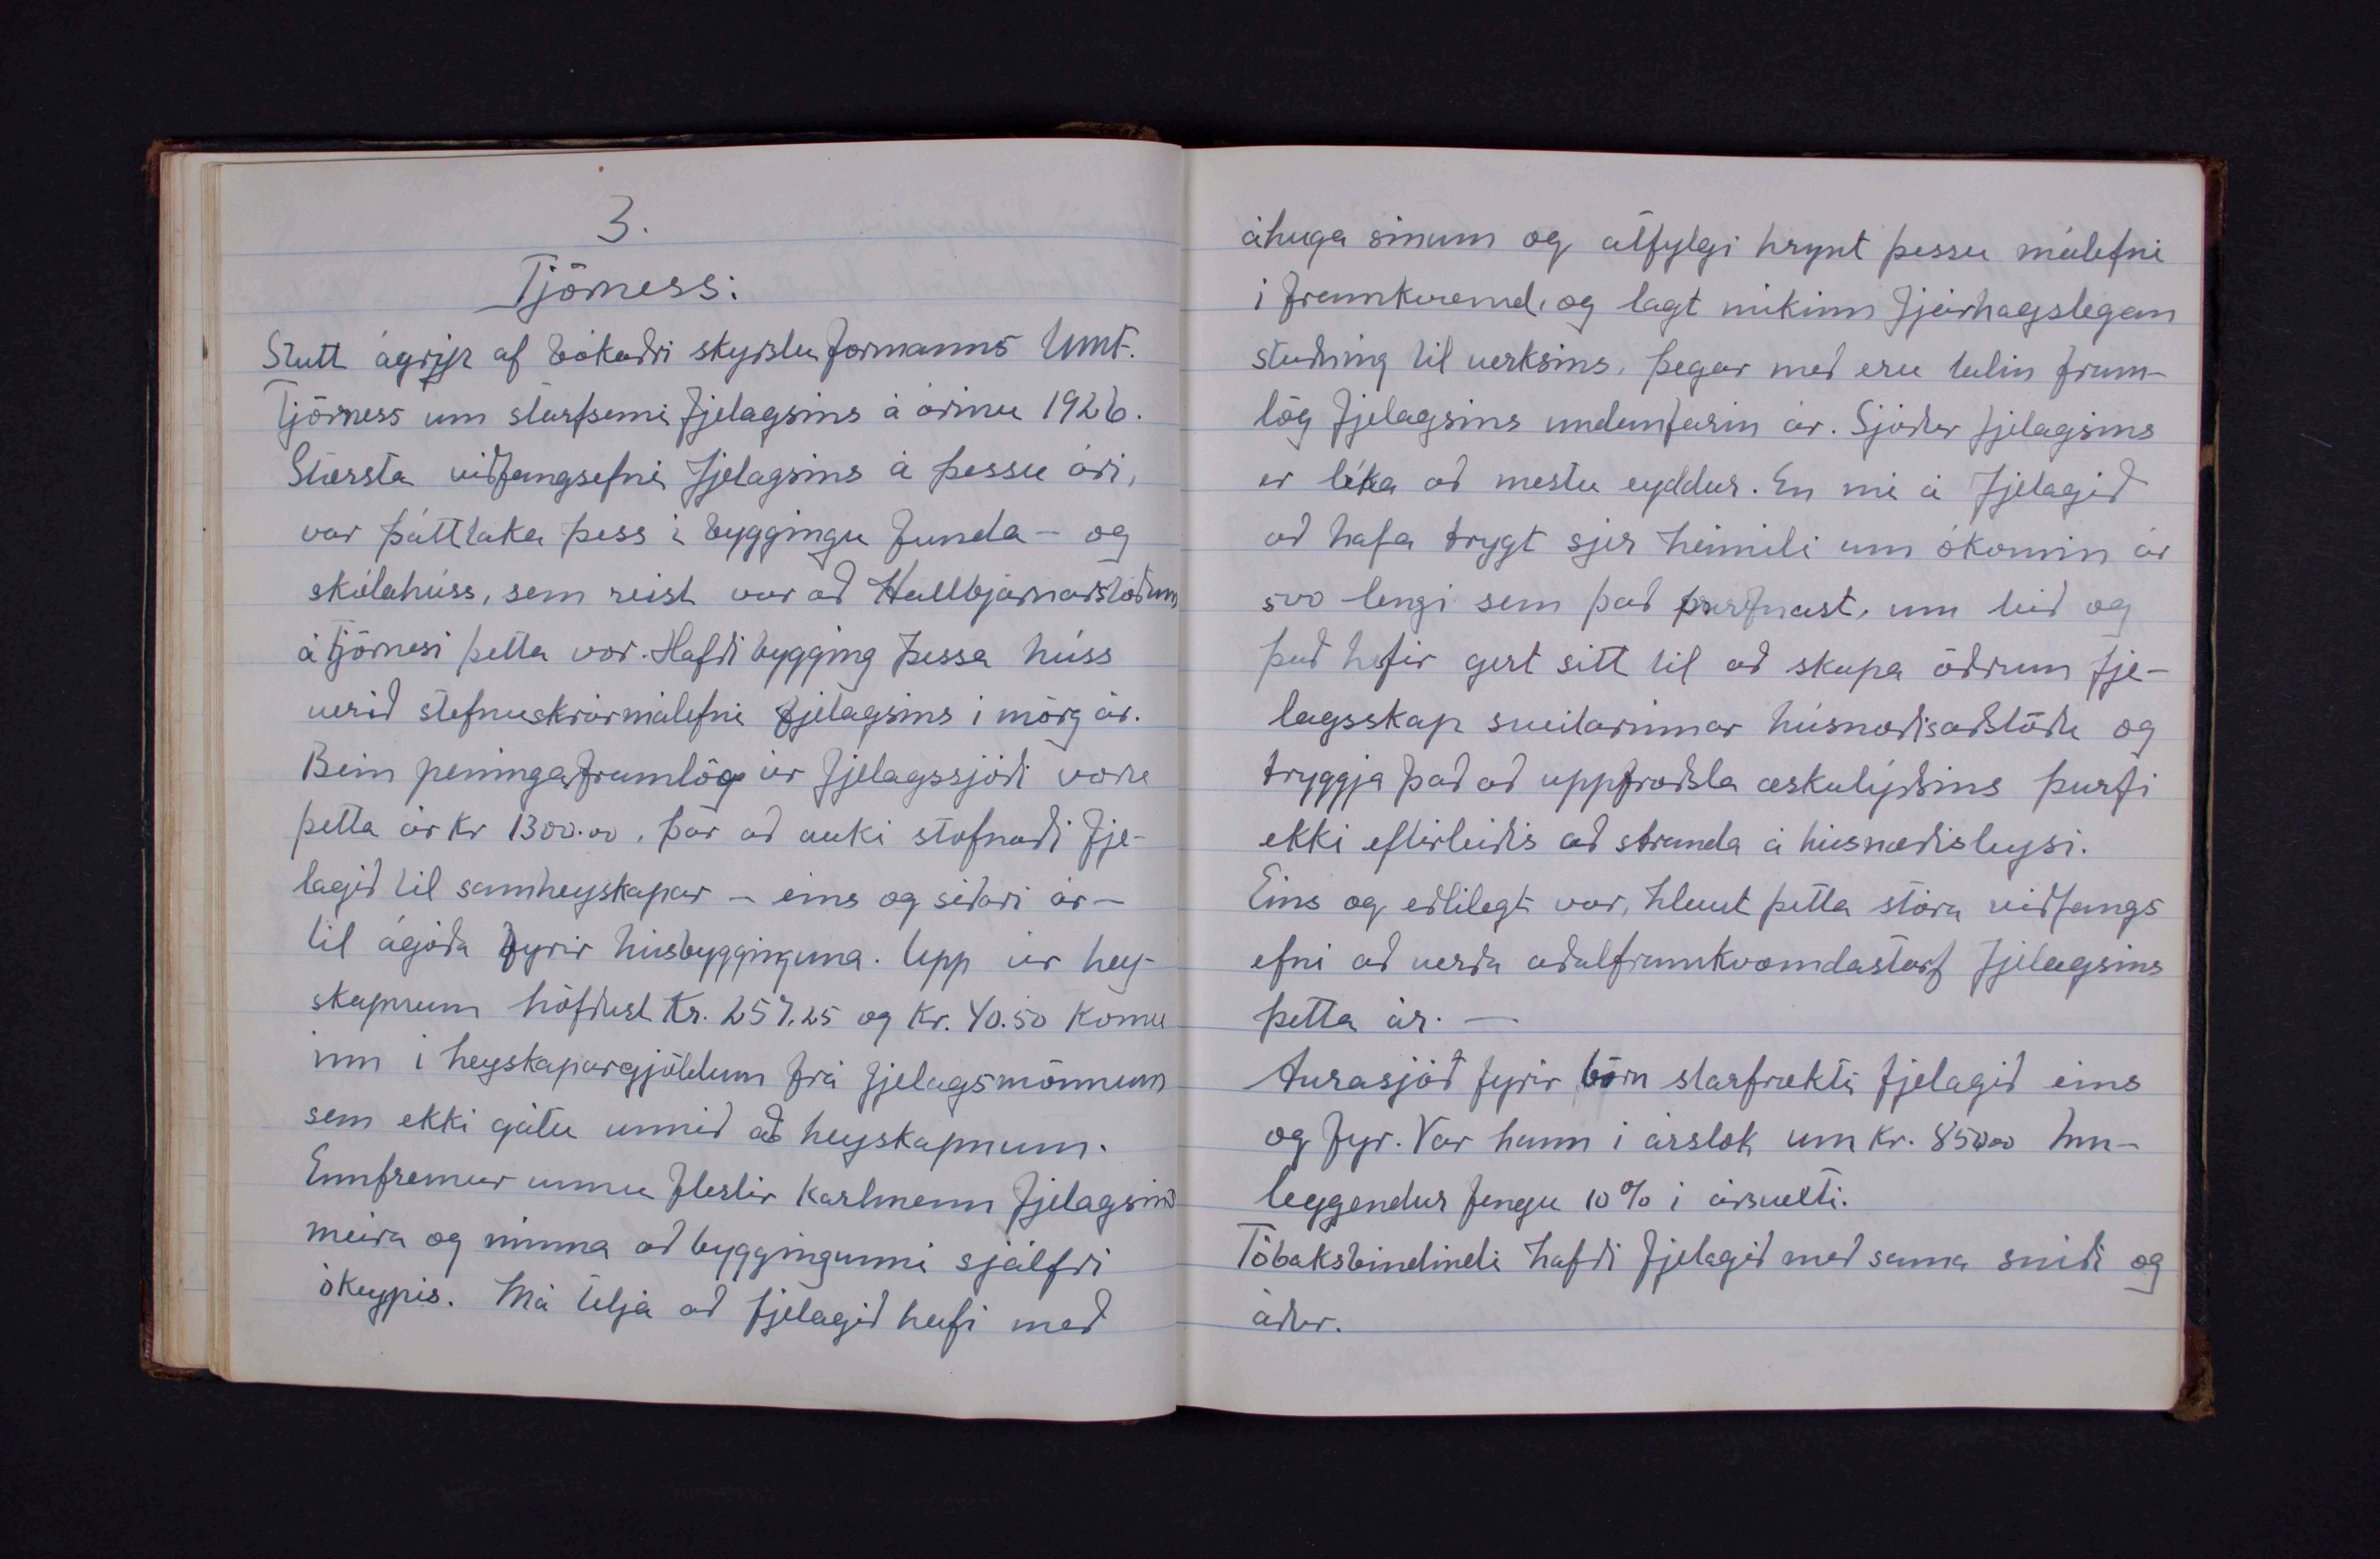 3.
Tjörness:
Stutt ágrip af bókaðri skyrslu formanns Umf.
Tjörness um starfsemi fjelagsins á árinu 1926.
Stærsta viðfangsefni fjelagsins á þessu ári,
var þátttaka þess í byggingu funda- og
skólahúss, sem reist var að Hallbjarnarstöðum
á Tjörnesi þetta vor. Hafði bygging þessa húss
verið stefnuskrármálefni fjelagsins í mörg ár.
Bein peningaframlög úr fjelagssjóði voru
þetta ár kr 1300.00. Þar að auki stofnaði fje-
lagið til samheyskapar - eins og síðari ár -
til ágóða fyrir húsbygginguna. Upp úr hey-
skapnum höfðust kr. 257.25 og kr. 40.50 komu
inn í heyskapargjöldum frá fjelagsmönnum
sem ekki gátu unnið að heyskapnum.
Ennfremur unnu flestir karlmenn fjelagsins
meira og minna að byggingunni sjálfri
ókeypis. Má telja að fjelagið hafi með
áhuga sínum og atfylgi hrynt þessu málefni
í framkvæmd, og lagt mikinn fjárhagslegan
stuðning til verksins, þegar með eru talin fram-
lög fjelagsins undanfarin ár. Sjóður fjelagsins
er líka að mestu eyddur. En nú á fjelagið
að hafa trygt sjer heimili um ókomin ár
svo lengi sem það þarfnast, um leið og
það hefir gert sitt til að skapa öðrum fje-
lagsskap sveitarinnar húsnæðisaðstöðu og
tryggja það að uppfræðsla æskulýðsins þurfi
ekki eftirleiðis að stranda á húsnæðisleysi.
Eins og eðlilegt var, hlaut þetta stóra viðfangs
efni að verða aðalframkvæmdastarf fjelagsins
þetta ár. -
Aurasjóð fyrir börn starfrækti fjelagið eins
og fyr. Var hann í árslok um kr. 850.00 Inn-
leggendur fengu 10% í ársvexti.
Tóbaksbindindi hafði fjelagið með sama sniði og
áður.